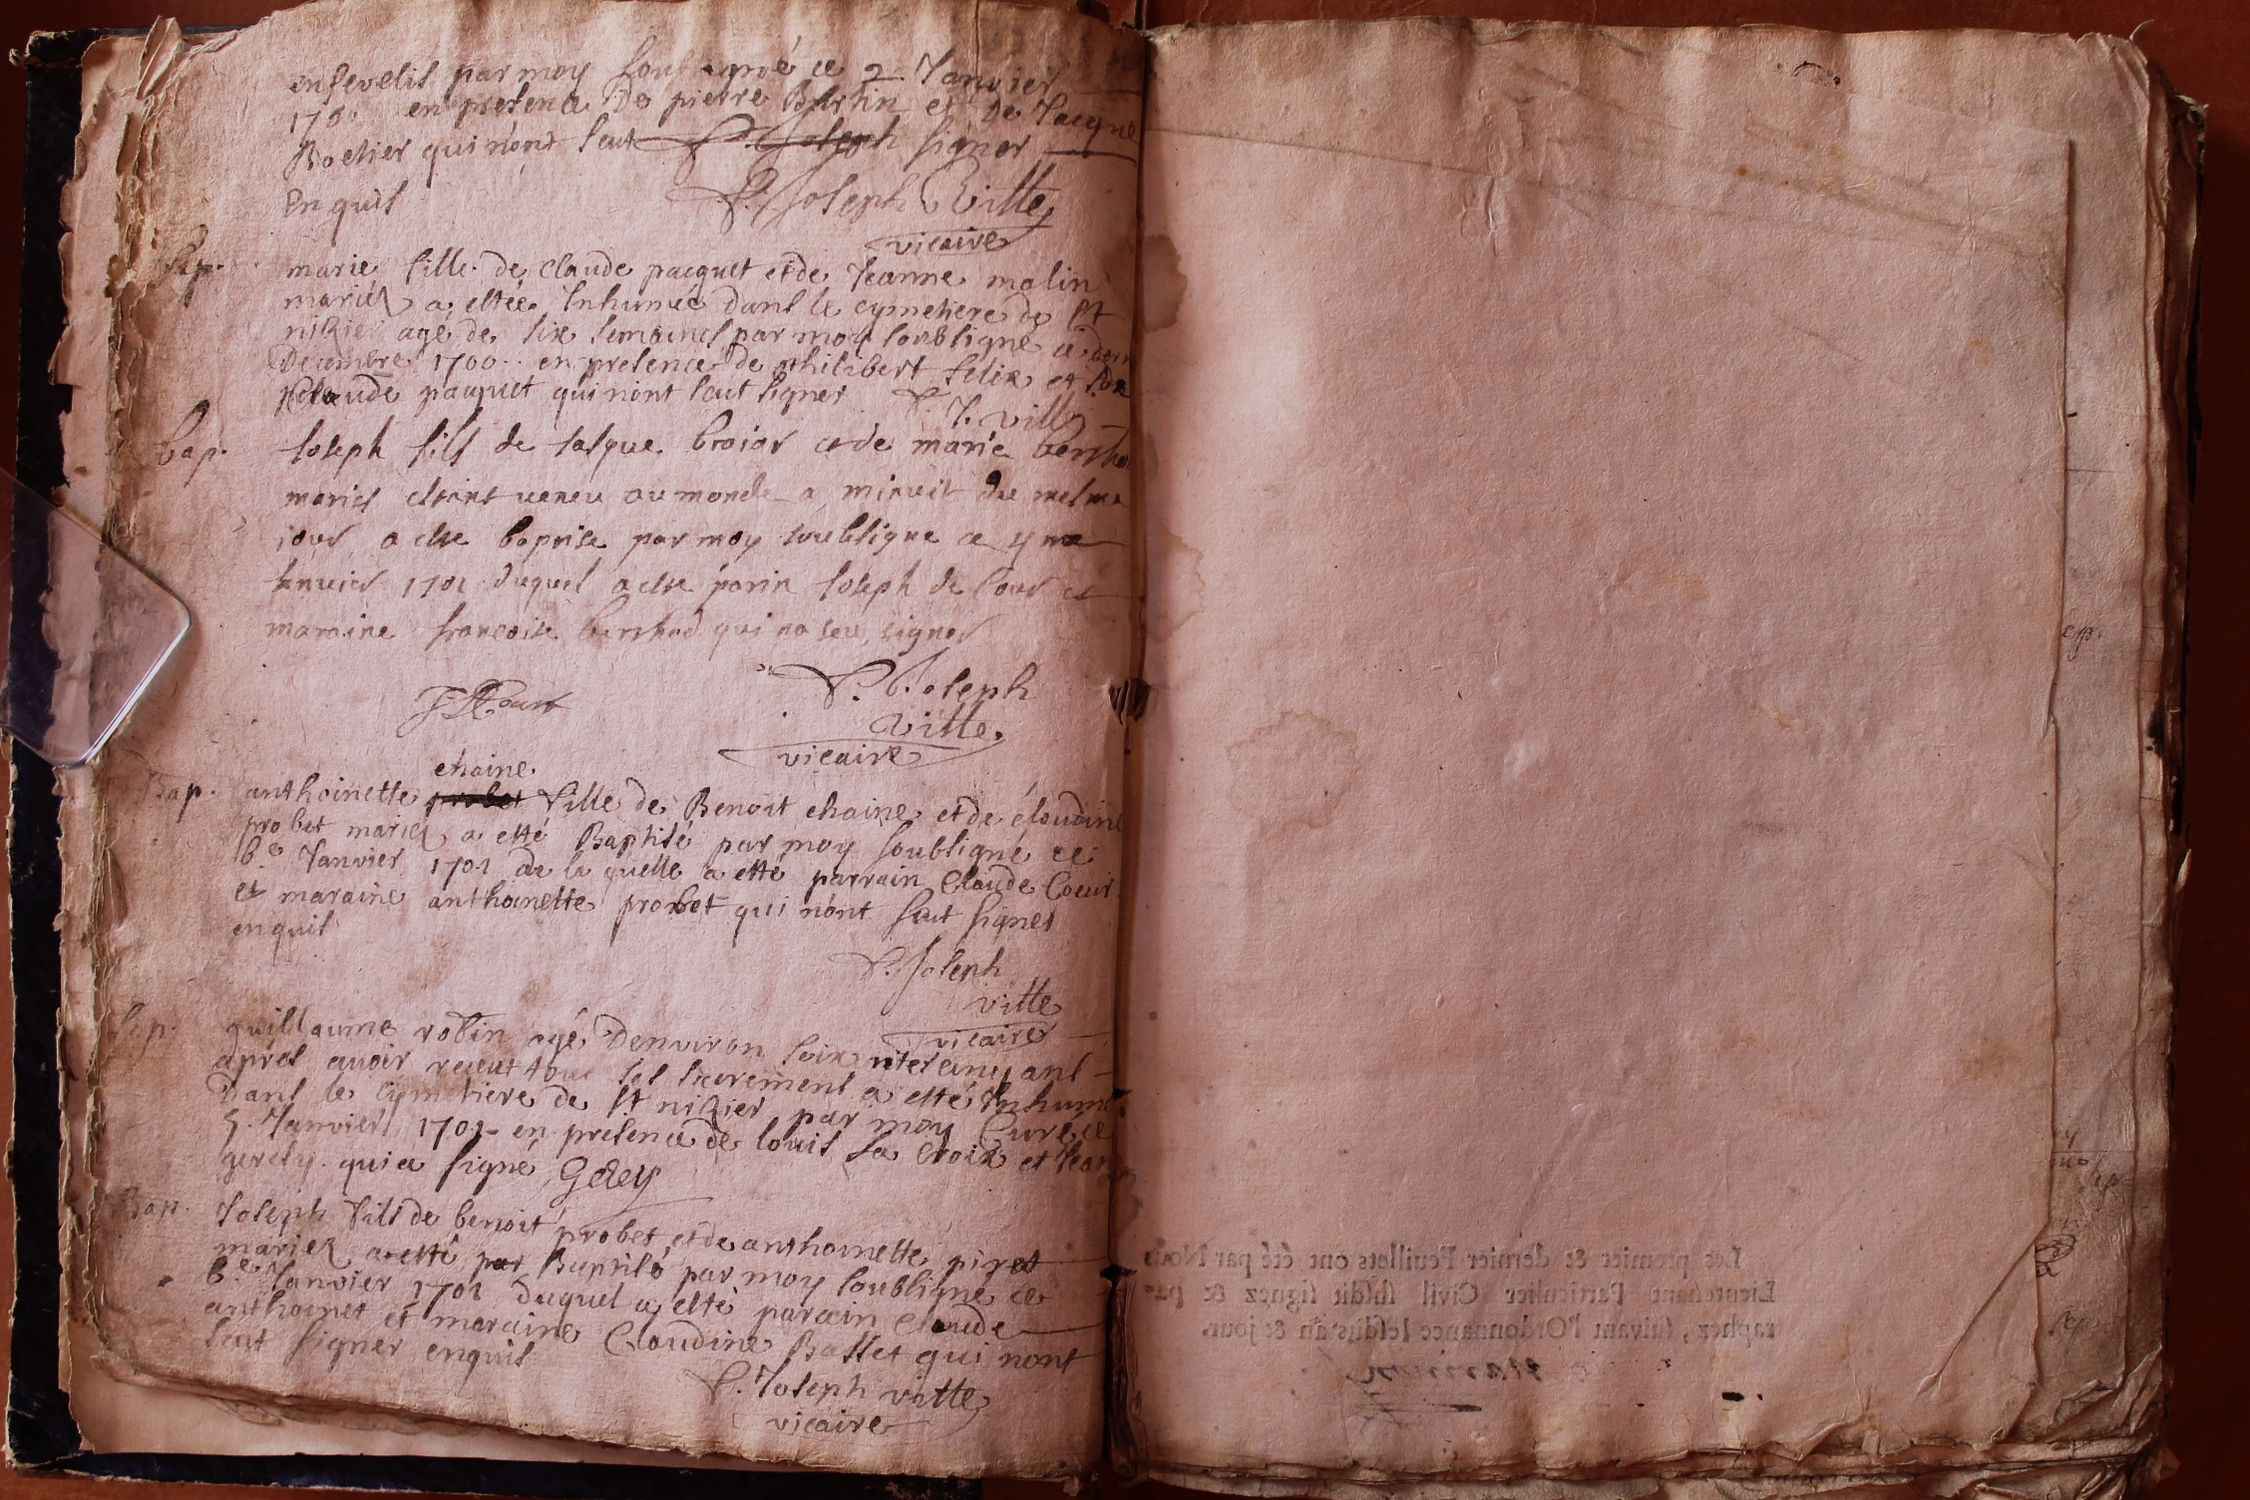 ensevelis par moy soussigné ce 2. Janvier
1701 en presence De pierre Burtin et De Jacque
Rochier qui n'ont scut P. Joseph signer
Enquis
P. Joseph Vitte
vicaire
Sep.
marie fille de Claude pacquet et de Jeanne malin
mariez a estée Inhumée dans le cymetiere de St
nizier agé de six semaines par moy soubsigné ce
Decembre 1700 en presence de philibert felix et
Claude paquet qui n'ont scut signer P. J. Vitte
bap.
Joseph fils de Jasque broiar et de marie
mariés estant veneu au monde a minuit du mesme
jour a este baptise par moy soubsigne ce
Januier 1701 duquel a este parin Joseph de Cour et
maraine francoise qui na seu signer
P. Joseph
Vitte
vicaire
chaine
Bap.
anthoinette probet fille de Benoit chaine et de cloudine
probet mariez a esté Baptisé par moy soubsigné ce
6.e Janvier 1701 de la quelle a esté parrain Claude Coeur
et maraine anthoinette probet qui n'ont scut signer
enquis
P. Joseph
vitte
vicaire
Sep.
guillaume robin agé D'environ soixante cinq ans
aprés avoir receut tous ses sacrements a esté Inhumé
Dans le cymetiere de St nizier par moy Curé ce
5. Janvier 1701 en presence de louis la Croix et
qui a signé Gerey
Bap.
Joseph fils de benoit probet et de anthoinette piret
mariez a esté par Baptisé par moy soubsigné ce
6.e Janvier 1701 duquel a esté parain claude
anthoinet et maraine Claudine Basset qui nont
scut signer enquis
P. Joseph vitte
vicaire
Les premier & dernier Feuillets ont été par Nous
Lieutenant Particulier Civil susdit signez & pa-
raphez, suivant l'Ordonnance lesdits an & jour.